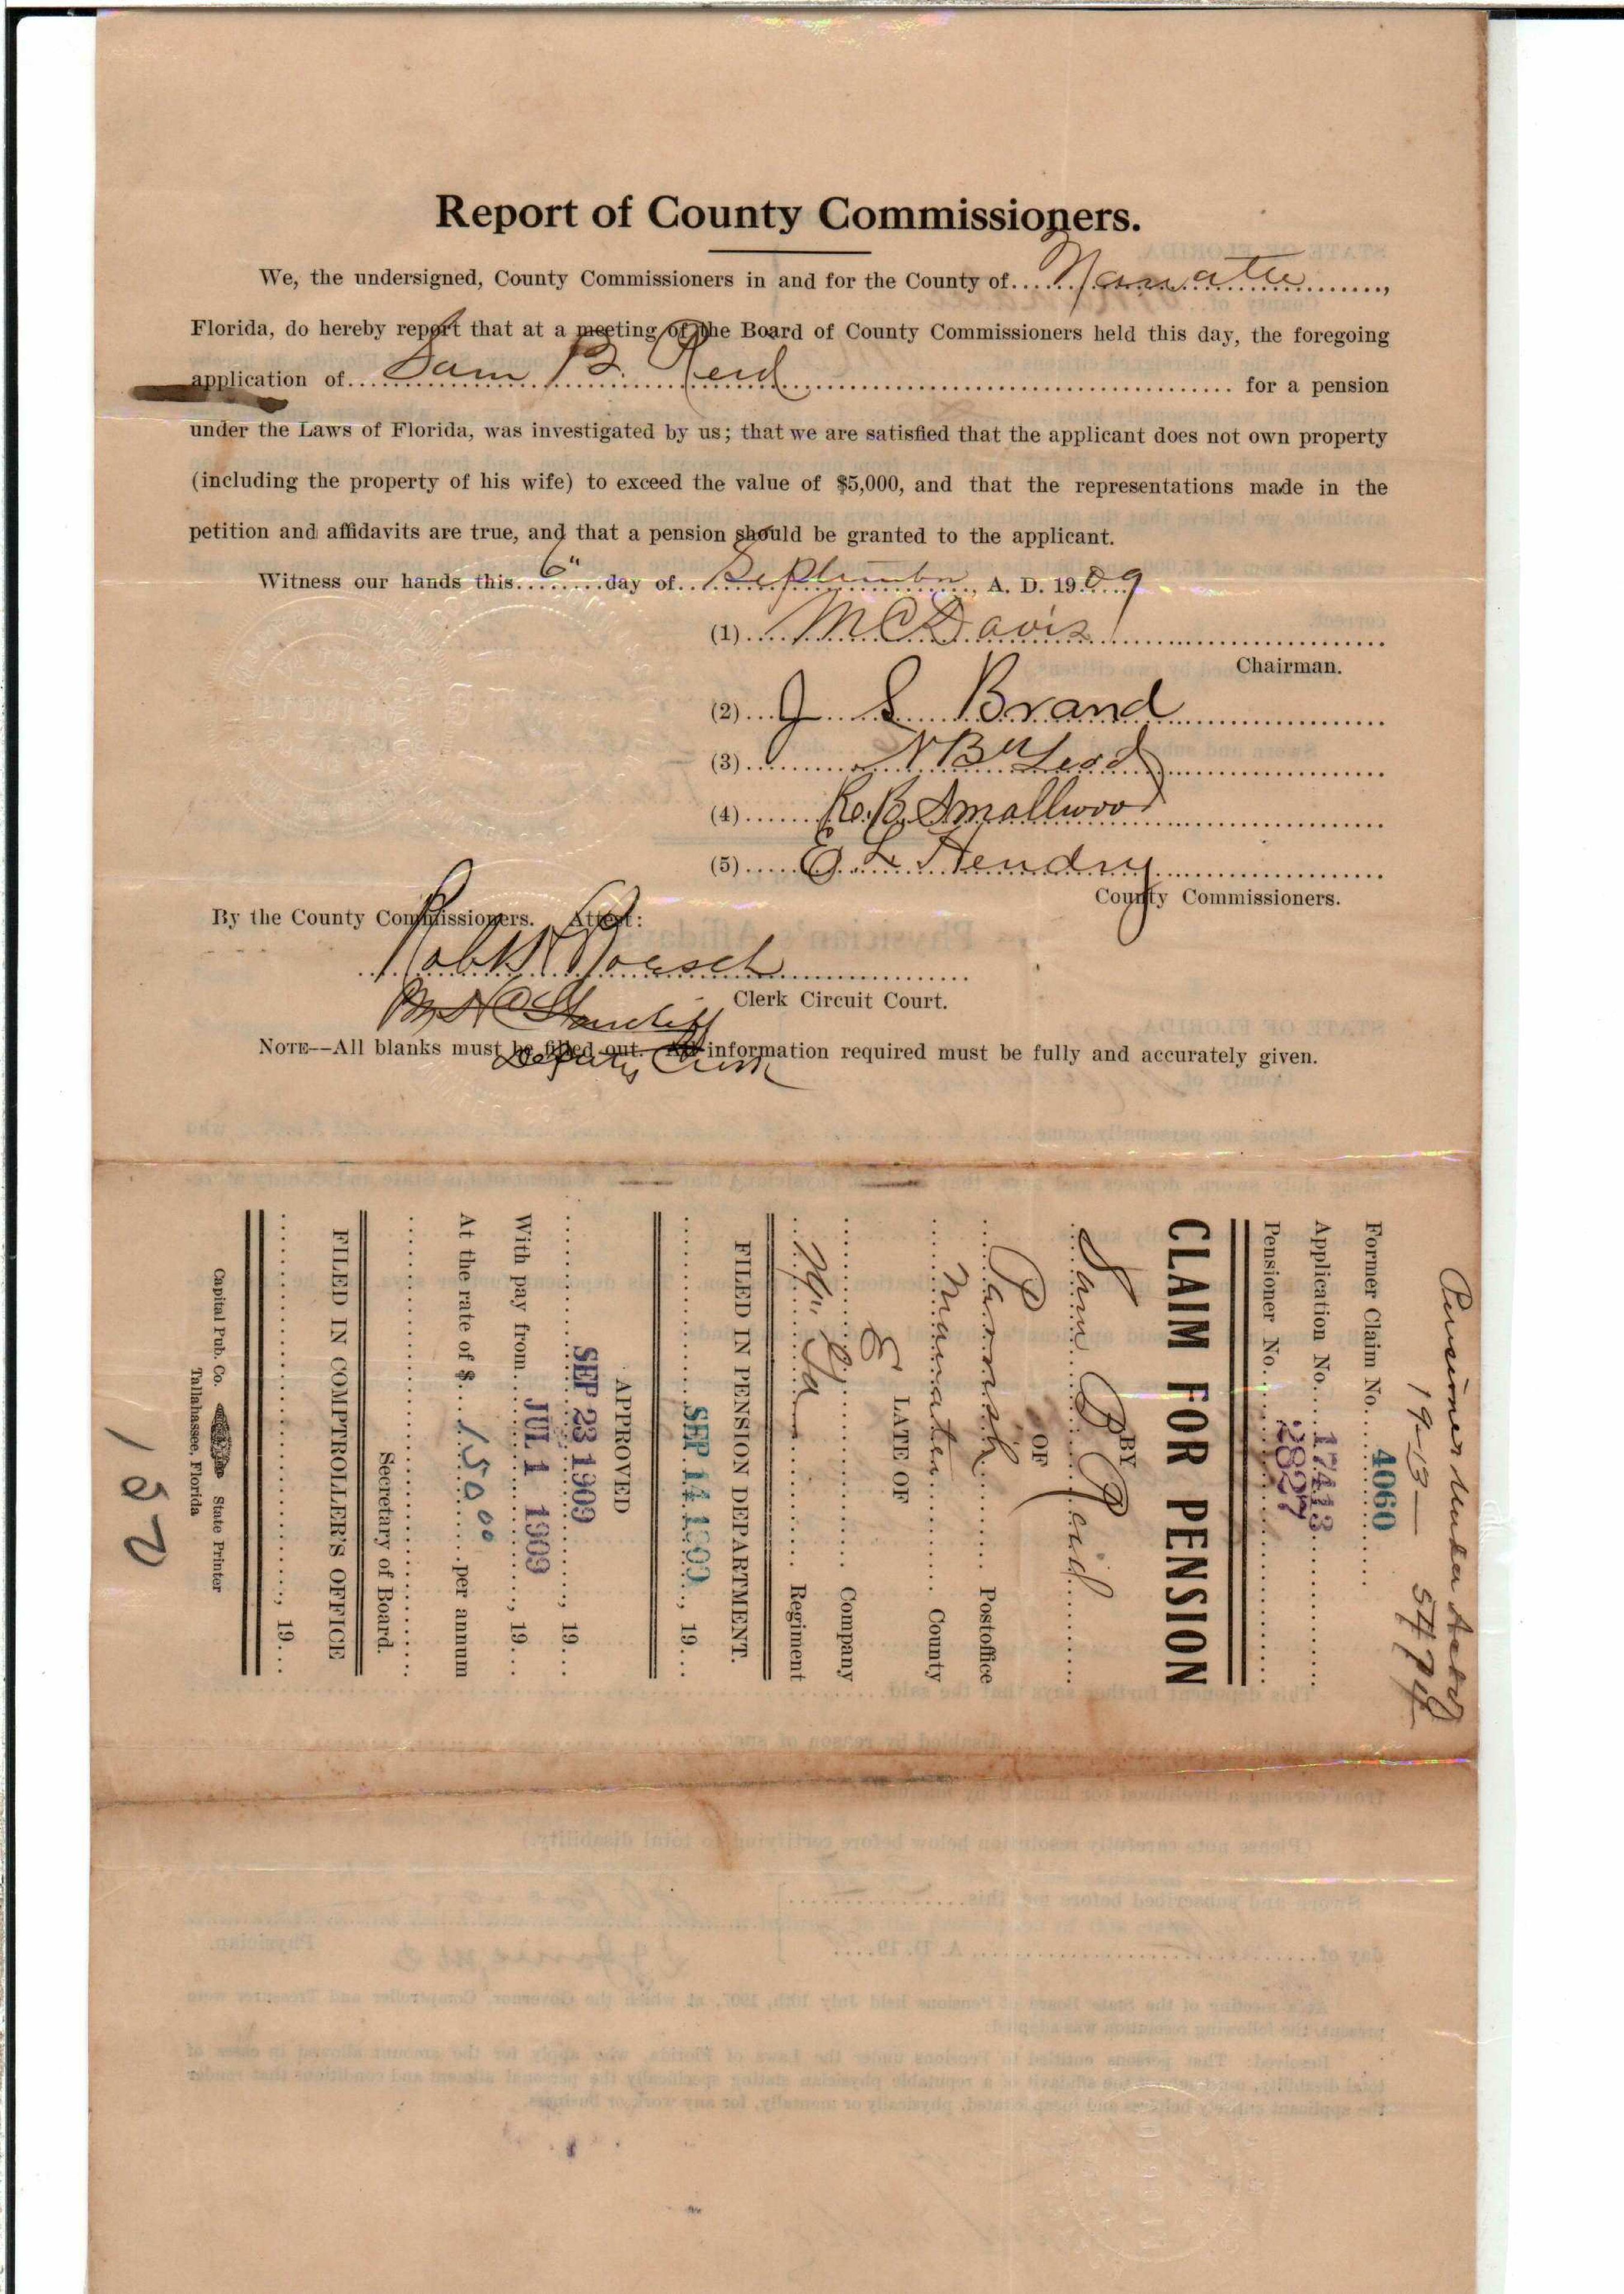 Report of County Commissioners.
We, the undersigned, County Commissioners in and for the County of Manatee,
Florida, do hereby report that at a meeting of the Board of County Commissioners held this day, the foregoing
application of Sam B. Reid for a pension
under the Laws of Florida, was investigated by us; that we are satisfied that the applicant does not own property
(including the property of his wife) to exceed the value of $5,000, and that the representations made in the
petition and affidavits are true, and that a pension should be granted to the applicant.
Witness our hands this 6" day of September, A. D. 1909
(1) M C Davis
Chairman.
(2) J S Brand
(3)
(4) R. B. Smallwood
(5) E L Hendry
County Commissioners.
By the County Commissioners. Attest:
Robt H Roesch
Clerk Circuit Court.
Deputy Clerk
NOTE--All blanks must be filled out. All information required must be fully and accurately given.
Pensioner under Act of
1913
Former Claim No. 4060
Application No. 17413
Pensioner No. 2827
CLAIM FOR PENSION
BY
Sam B Reid
OF
Parrish Postoffice
Manatee County
LATE OF
E Company
Regiment
FILED IN PENSION DEPARTMENT.
SEP 14 1909, 19
APPROVED
SEP 23 1909, 19
With pay from JUL 1 1909, 19
At the rate of $ 150.00 per annum
Secretary of Board.
FILED IN COMPTROLLER'S OFFICE
, 19
Capital Pub. Co. State Printer
Tallahassee, Florida